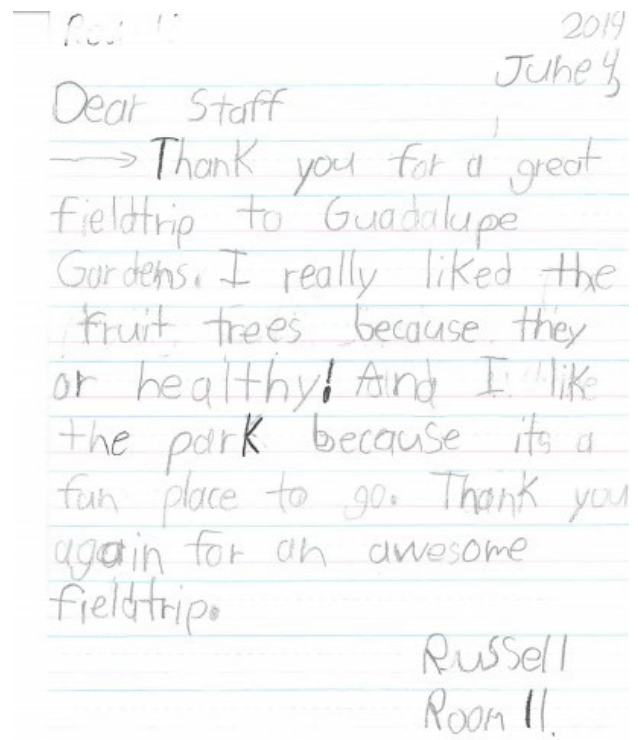 2014
June 4,
Dear Staff
→ Thank you for a great
fieldtrip to Guadalupe
Gardens. I really liked the
fruit trees because they
or healthy! And I like
the park because its a
fun place to go. Thank you
again for an awesome
fieldtrip.
Russell
Room 11.